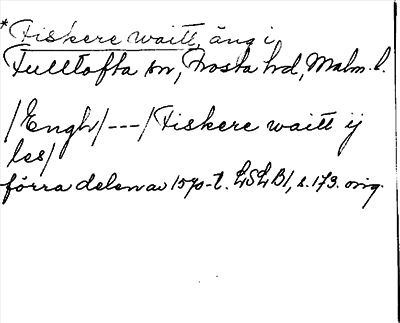 *Fiskere waitt, äng i
Fulltofta sn, Frosta hd, Malm. l.
/Engh/---/Fiskere waitt ij
les/
förra delen av 1570-t. LSLB1, s. 173. orig.